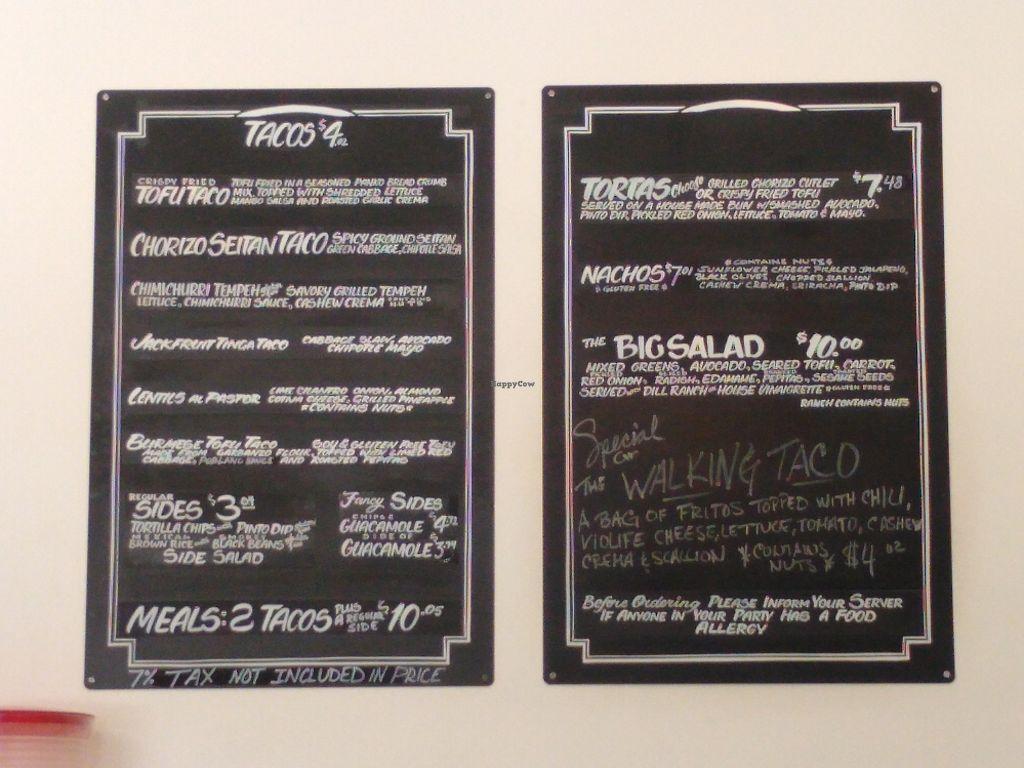 TACOS $4.02
CRISPY FRIED
TOFU TACO
TOFU FRIED IN A SEASONED PANKO BREAD CRUMB
MIX, TOPPED WITH SHREDDED LETTUCE
MANGO SALSA AND ROASTED GARLIC CREMA
CHORIZO SEITAN TACO
SPICY GROUND SEITAN
GREEN CABBAGE, CHIPOTLE SALSA
CHIMICHURRI TEMPEH SAVORY GRILLED TEMPEH
LETTUCE, CHIMICHURRI SAUCE, CASHEW CREMA
JACKFRUIT TINGA TACO
CABBAGE SLAW, AVOCADO
CHIPOTLE MAYO
LENTILS AL PASTOR
LIME CILANTRO ONION, ALMOND
COTIJA CHEESE, GRILLED PINEAPPLE
*CONTAINS NUTS*
BURMESE TOFU TACO SOY & GLUTEN FREE TOFU
MADE FROM GARBANZO FLOUR, TOPPED WITH LIMED RED
CABBAGE, AND ROASTED PEPITAS
REGULAR
SIDES $3
TORTILLA CHIPS PINTO DIP
MEXICAN SMOKEY
BROWN RICE BLACK BEANS
SIDE SALAD
Fancy SIDES
CHIPS &
GUACAMOLE $4.72
SIDE OF
GUACAMOLE 3.74
MEALS: 2 TACOS PLUS A REGULAR SIDE $10.05
7% TAX NOT INCLUDED IN PRICE
HappyCow
TORTAS Choose GRILLED CHORIZO CUTLET $7.48
OR CRISPY FRIED TOFU
SERVED ON A HOUSE MADE BUN W/SMASHED AVOCADO,
PINTO DIP, PICKLED RED ONION, LETTUCE, TOMATO & MAYO.
*CONTAINS NUTS
NACHOS $7.01 SUNFLOWER CHEESE, PICKLED JALAPENO,
* GLUTEN FREE * BLACK OLIVES, CHOPPED SCALLION
CASHEW CREMA, SRIRACHA, PINTO DIP
THE BIG SALAD $10.00
MIXED GREENS, AVOCADO, SEARED TOFU, CARROT,
RED ONION, RADISH, EDAMAME, PEPITAS, SESAME SEEDS
SERVED DILL RANCH OR HOUSE VINAIGRETTE *GLUTEN FREE*
RANCH CONTAINS NUTS
Special
THE WALKING TACO
A BAG OF FRITOS TOPPED WITH CHILI,
VIOLIFE CHEESE, LETTUCE, TOMATO, CASHEW
CREMA & SCALLION *CONTAINS NUTS* $4.02
Before Ordering PLEASE INFORM YOUR SERVER
IF ANYONE IN YOUR PARTY HAS A FOOD
ALLERGY